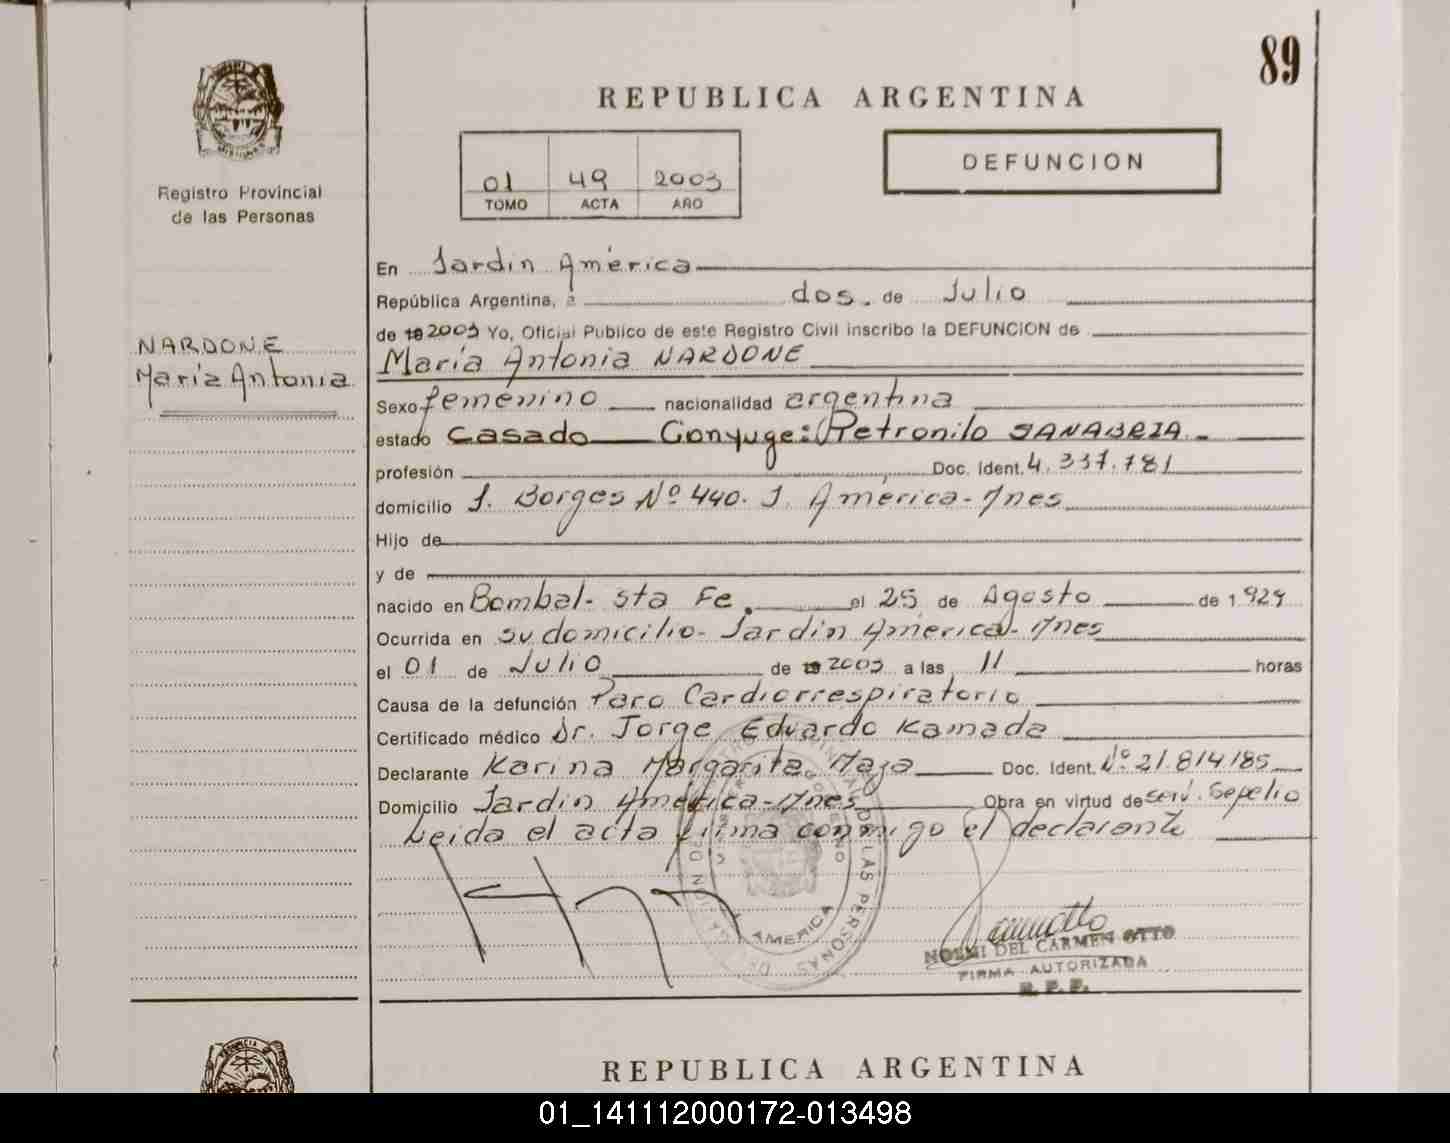 89
REPUBLICA ARGENTINA
DEFUNCION
01 49 2003
TOMO ACTA AÑO
Registro Provincial
de las Personas
NARDONE
María Antonia
En Jardín América
República Argentina, a dos. de Julio
de 2003 Yo, Oficial Publico de este Registro Civil inscribo la DEFUNCION de
María Antonia NARDONE
Sexo femenino nacionalidad argentina
estado Casado Conyuge: Petronilo SANABRIA.-
profesión Doc. Ident. 4.337.781
domicilio J. Borges Nº 440. J. América-Mnes
Hijo de
y de
nacido en Bombal- Sta Fe. el 25 de Agosto de 1929
Ocurrida en su domicilio- Jardín América- Mnes
el 01 de Julio de 2003 a las 11 horas
Causa de la defunción Paro Cardiorrespiratorio
Certificado médico Dr. Jorge Eduardo Kamada
Declarante Karina Margarita Doc. Ident. Nº 21.814.185
Domicilio Jardín América-Mnes Obra en virtud de serv. Sepelio
Leida el acta firma conmigo el declarante
AMERICA
LAS PERSONAS
NOEMI DEL CARMEN OTTO
FIRMA AUTORIZADA
R. P. P.
REPUBLICA ARGENTINA
01_141112000172-013498